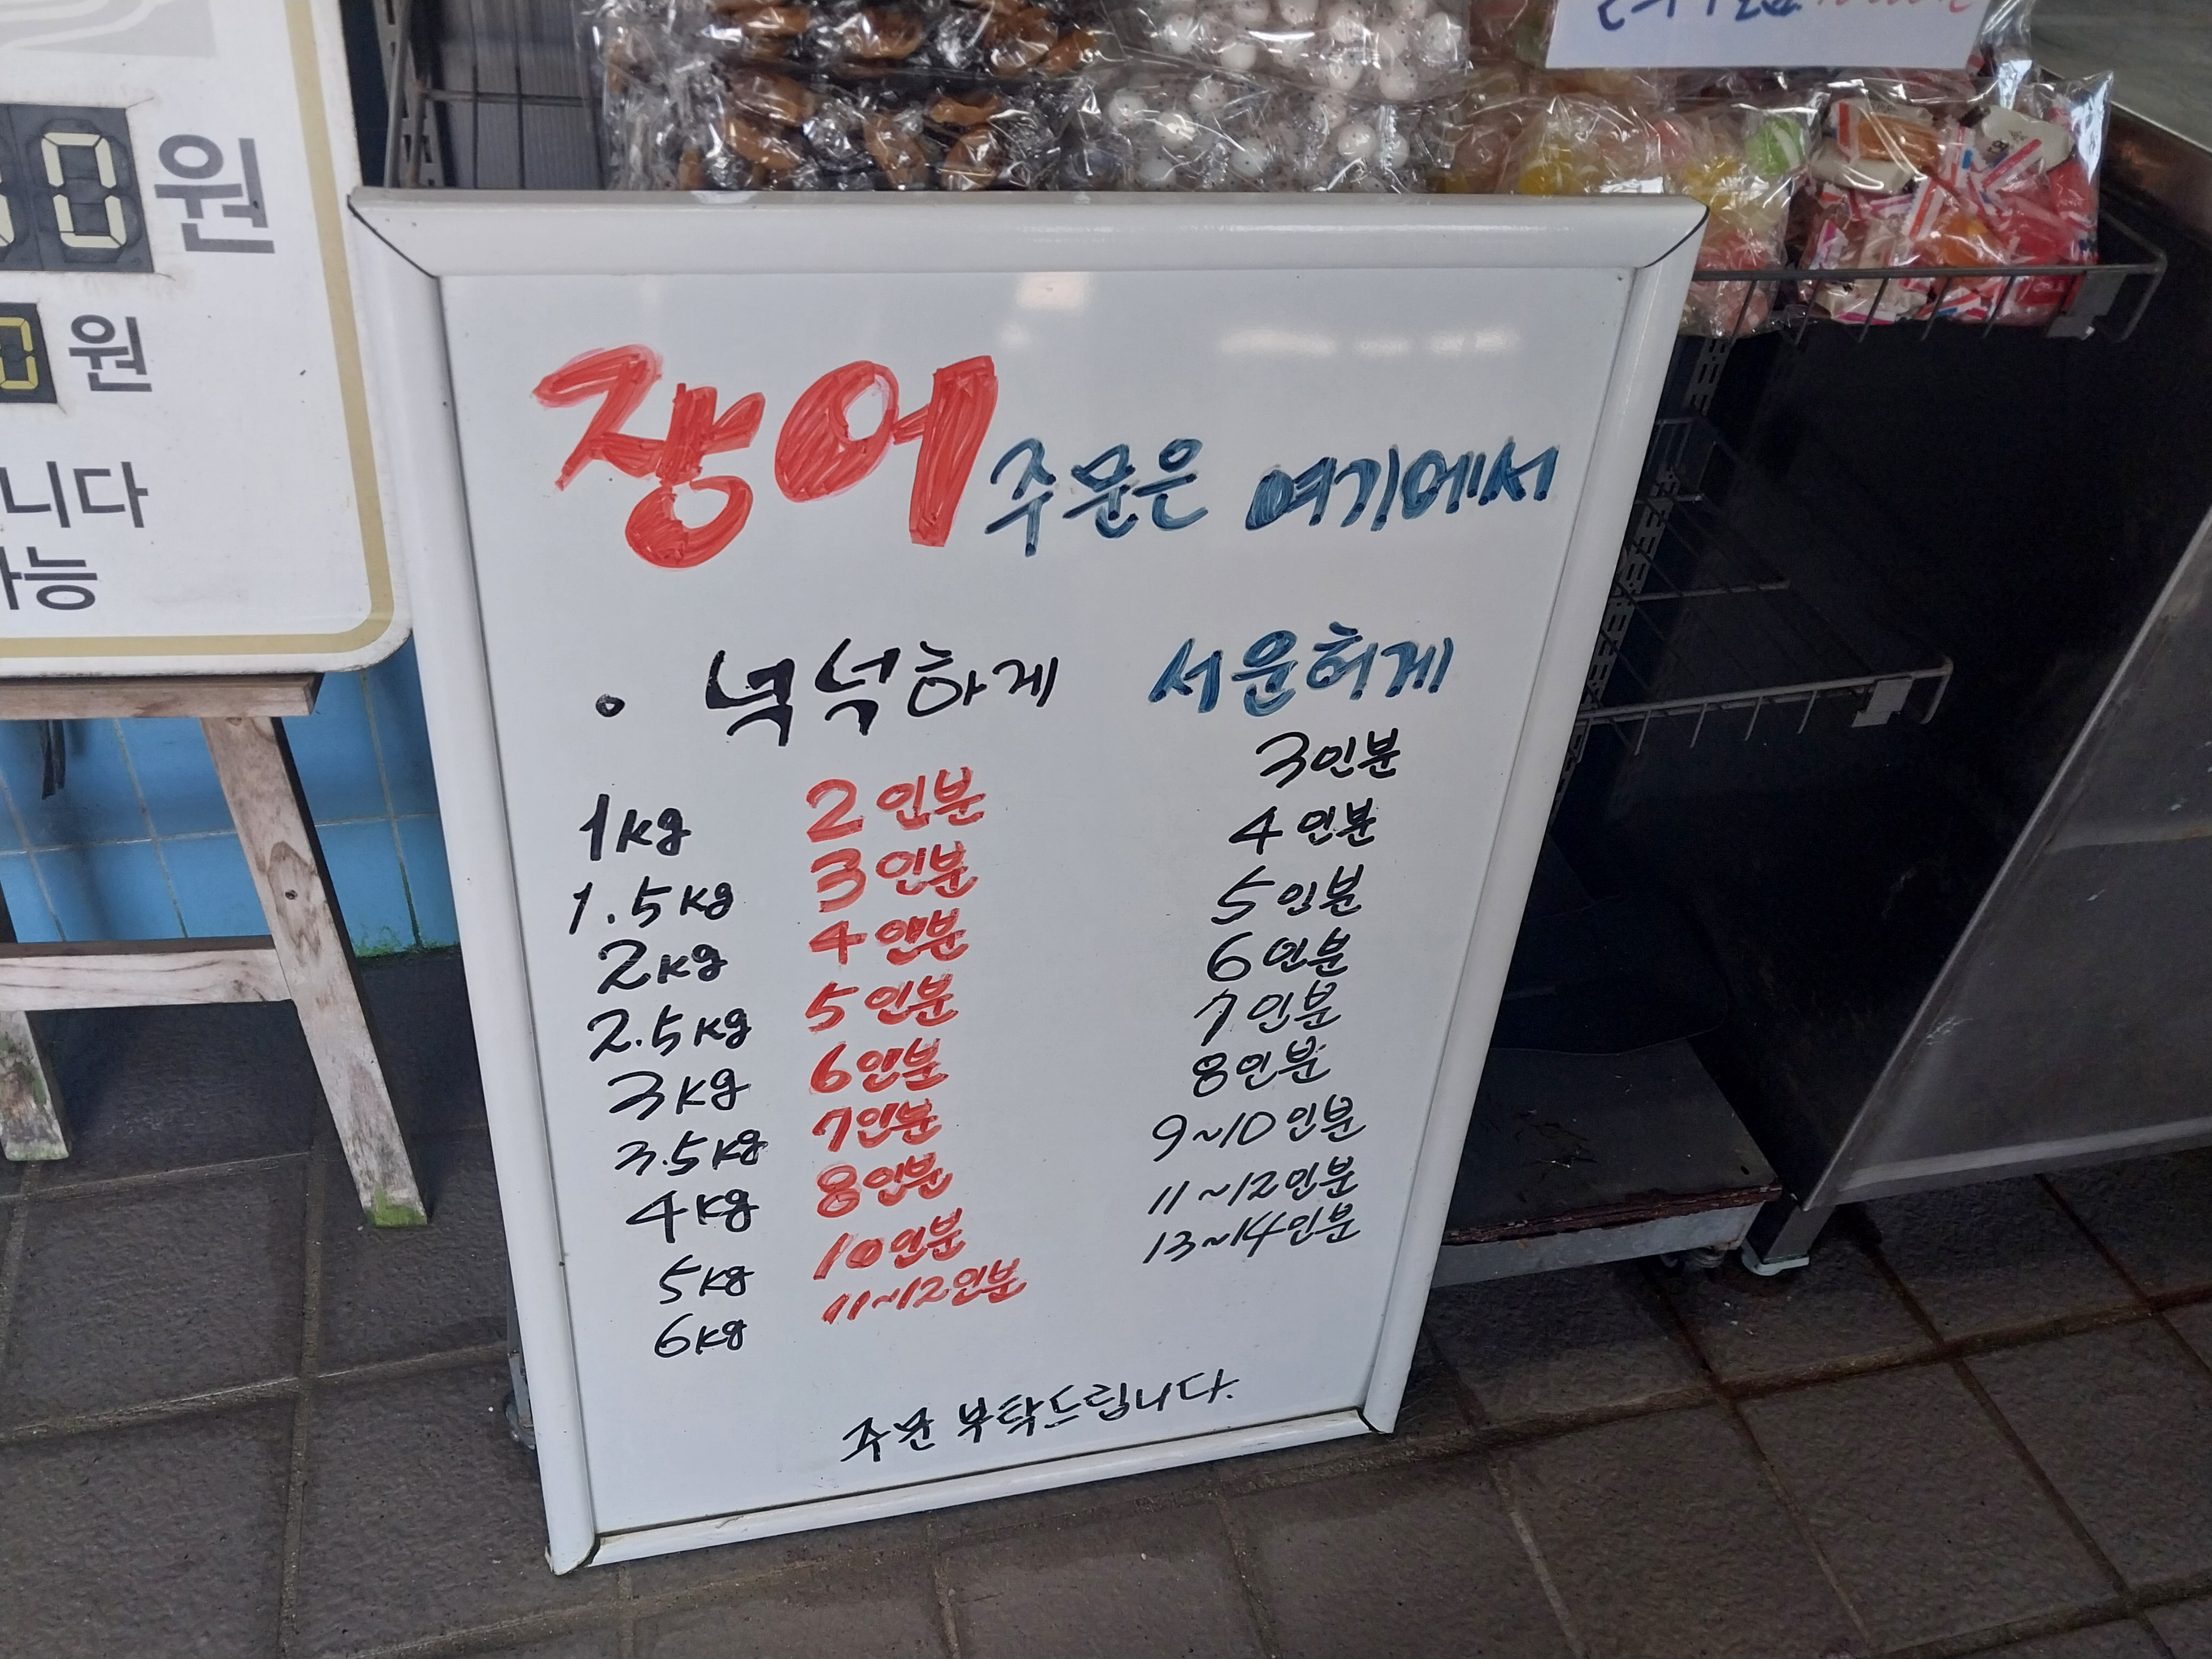 0원
0원
니다
능
장어 주문은 여기에서
• 넉넉하게 서운허게
1kg 2인분 3인분
1.5kg 3인분 4인분
2kg 4인분 5인분
2.5kg 5인분 6인분
3kg 6인분 7인분
3.5kg 7인분 8인분
4kg 8인분 9~10인분
5kg 10인분 11~12인분
6kg 11~12인분 13~14인분
주문 부탁드립니다.